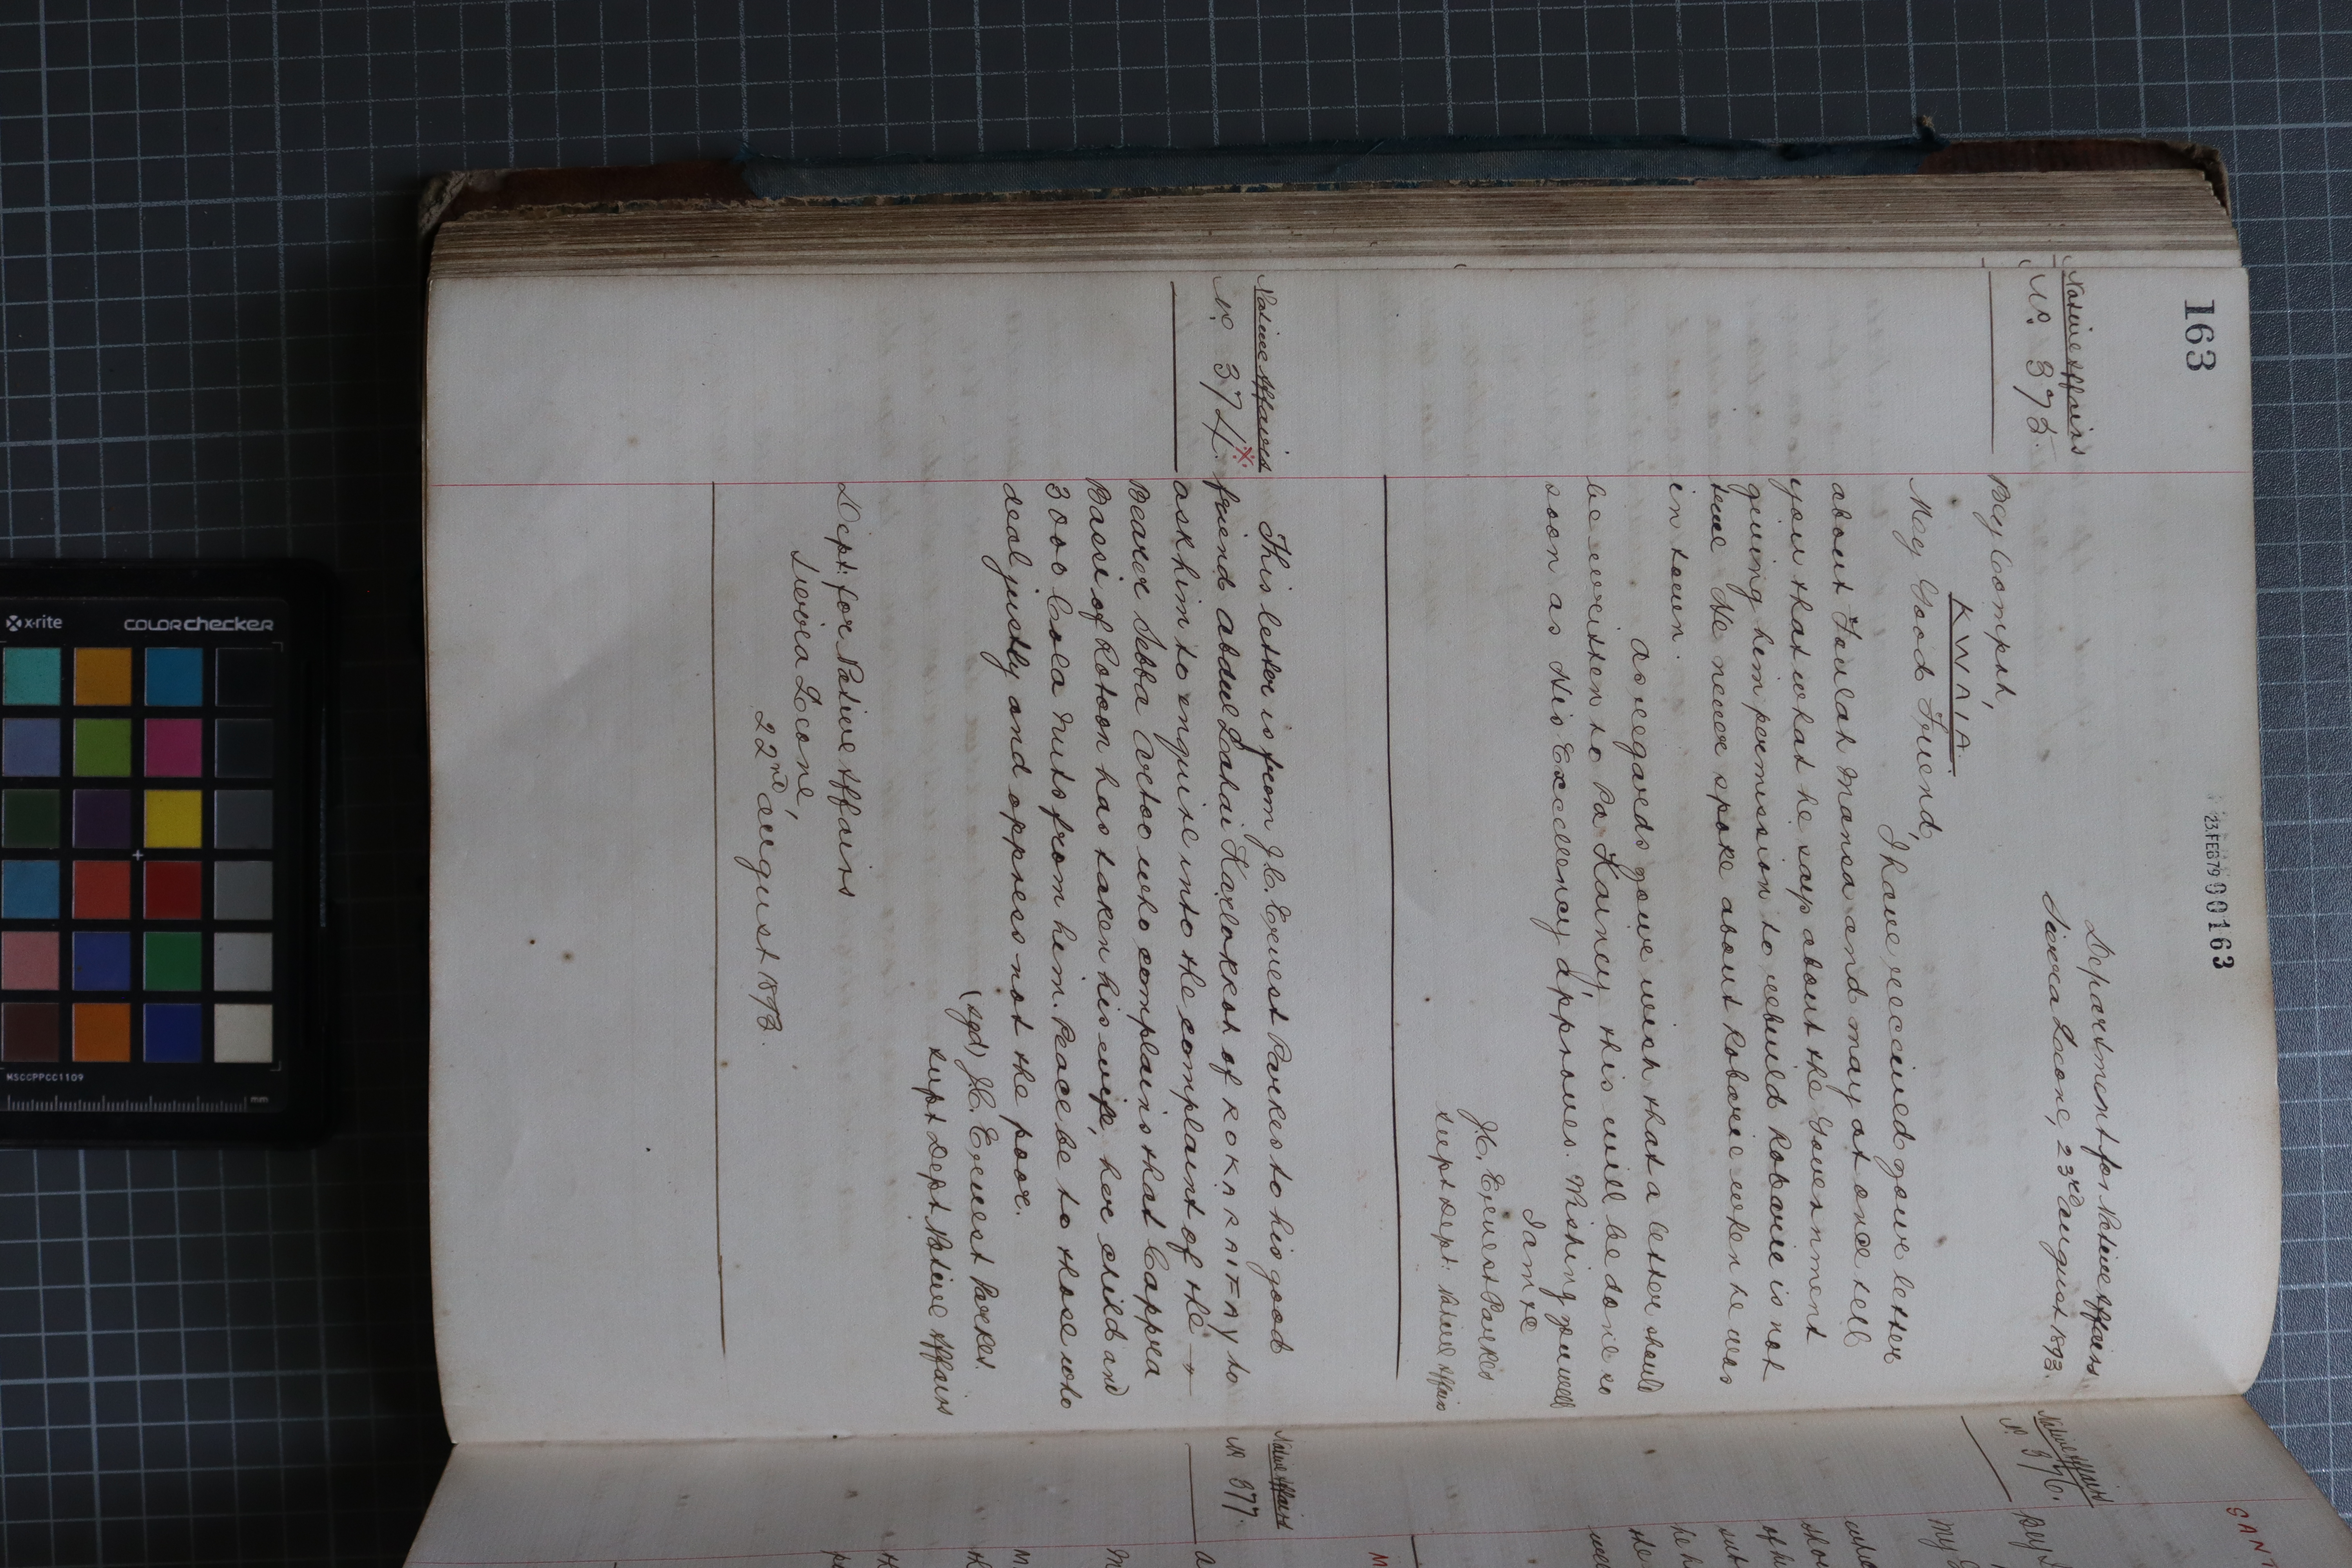 163
23.FEB79 00163
Native Affairs
No. 375.
Department for Native Affairs
Sierra Leone, 23rd August 1893.
Bey Compɦ,
KWAIA.
My Good Friend,
I have received your letter
about Foulah Mansa and may at once tell
you that what he says about the Government
giving him permission to rebuild Robarie is not
true He never spoke about Robarie when he was
in town.
As regards your wish that a letter should
be written to Pa Kainey, this will be done so
soon as His Excellency approves. Wishing you well
I am &c
J.C. Ernest Parkes
Supt Dept: Native Affairs
Native Affairs
No. 374.
This letter is from J.C. Ernest Parkes to his good
friend Abdul Lahai Karlokkoh of to
ask him to enquire into the complaint of the
Bearer Sebba Actoo who complains that Cappra
Bassi of Rotoon has taken his wife, her child and
3000 Cola Nuts from him. Peace be to those who
deal justly and oppress not the poor.
(sgd) J.C. Ernest Parkes.
Supt Dept Native Affairs
Dept: for Native Affairs
Sierra Leone,
22nd August 1893.
Native Affairs
No 376.
Native Affairs
No 377.
SAN